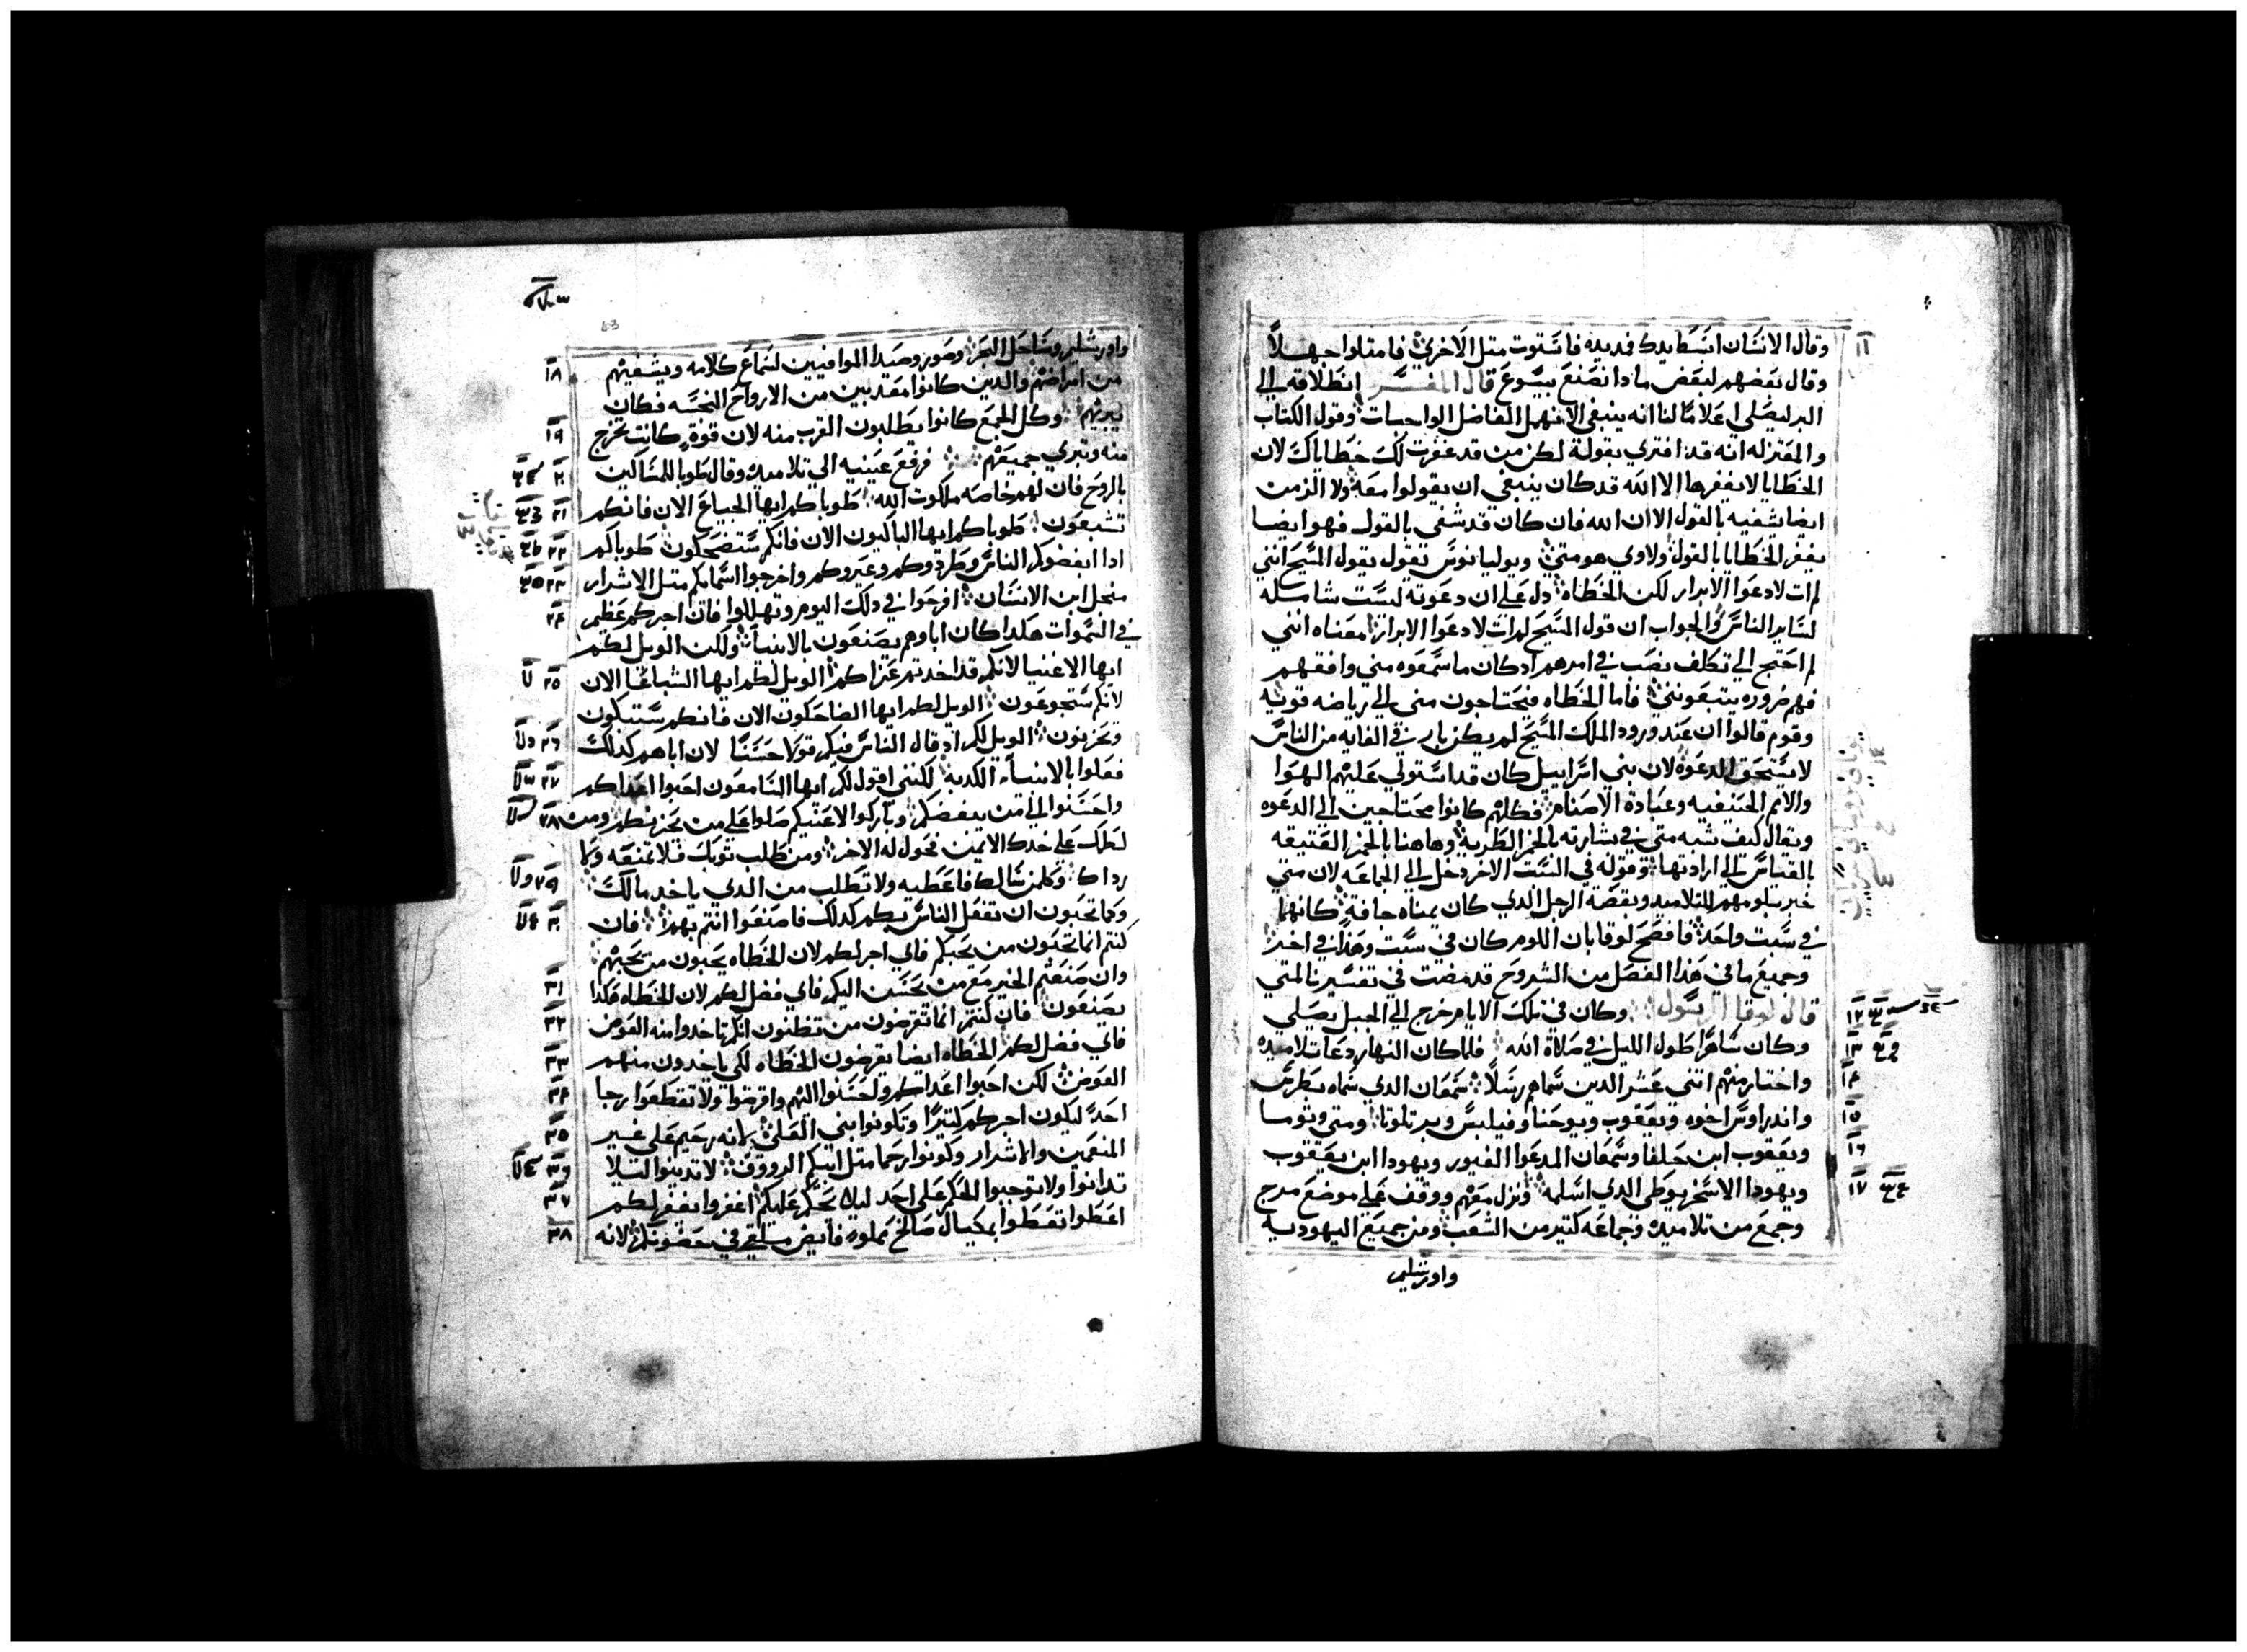 وقال الانسان ابسط يدك فمد يده فاستوت متل الاخري فامتلوا جهلاً
وقال بعضهم لبعض ما دا نصنع بيسوع قال المفسر انطلاقه الي
البر ليصلي اعلاماً لنا انه ينبغي الا نهمل الفاضل الواجبات وقول الكتاب
والمعتزله انه قد افتري بقوله لكن من قد غفرت لك خطاياك لان
الخطايا لا يغفرها الا الله قد كان ينبغي ان يقولوا معه ولا الزمن
ايضا يشفيه بالقول الا ان الله فان كان قد شفي بالقول فهو ايضا
يغفر الخطايا بالقول ولاوي هو متي ويوليانوس يقول بقول المسيح انني
لم ات لادعوا الابرار لكن الخطاه دل علي ان دعوته ليست شامله
لساير الناس والجواب ان قول المسيح لم ات لادعوا الابرار معناه انني
لم احتج الي تكلف نصب في امرهم اد كان ما سمعوه مني وافقهم
فهم ضروره يتبعونني فاما الخطاه فيحتاجون مني الي رياضه قويه
وقوم قالوا ان عند ورود الملك المسيح لم يكن بار في الغايه من الناس
لا يستحق الدعوه لان بني اسراييل كان قد استولي عليهم الهوا
والامم الحنيفيه وعبادة الاصنام فكلهم كانوا محتاجين الي الدعوه
ويقال كيف شبه متي في بشارته بالخمر الطريه وهاهنا بالخمر العتيقه
بالقياس الي ارادتها وقوله في السبت الاخر دخل الي الجماعه لان متي
خبر بلومهم للتلاميد وبقصة الرجل الدي كان يمناه جافه كانهما
في سبت واحد فافصح لوقا بان اللوم كان في سبت وهدا في اخر
وجميع ما في هدا الفصل من الشروح قد مضت في تفسيرنا لمتي
قال لوقا الرسول وكان في تلك الايام خرج الي الجبل يصلي
وكان ساهراً طول الليل في صلاة الله فلما كان النهار دعا تلاميده
واختار منهم اتني عشر الدين سماهم رسلاً سمعان الدي سماه بطرس
واندراوس اخوه ويعقوب ويوحنا وفيلبس وبرتلوتا ومتي وتوما
ويعقوب ابن حلفا وسمعان المدعوا الغيور ويهودا ابن يعقوب
ويهودا الاسخريوطي الدي اسلمه ونزل معهم ووقف علي موضع مرج
وجمع من تلاميده وجماعه كتير من الشعب ومن جميع اليهوديه
واورشليم
واورشليم وساحل البحر وصور وصيدا الموافيين لسماع كلامه ويشفيهم
من امراضهم والدين كانوا معدبين من الارواح النجسه فكان
يبريهم وكل الجمع كانوا يطلبون القرب منه لان قوة كانت تخرج
منه وتبري جميعهم فرفع عينيه الي تلاميده وقال طوبا للمساكين
بالروح فان لهم خاصه ملكوت الله طوباكم ايها الجياع الان فانكم
تشبعون طوباكم ايها الباكيون الان فانكم ستضحكون طوباكم
ادا ابغضوكم الناس وطردوكم وعيروكم واخرجوا اسماكم متل الاشرار
منجل ابن الانسان افرحوا في دلك اليوم وتهللوا فان اجركم عظم
في السموات هكدا كان اباوهم يصنعون بالانبيا ولكن الويل لكم
ايها الاغنيا لانكم قد اخدتم عزاكم الويل لكم ايها الشباعا الان
لانكم ستجوعون الويل لكم ايها الضاحكون الان فانكم ستبكون
وتحزنون الويل لكم اد قال الناس فيكم قولا حسناً لان اباهم كدلك
فعلوا بالانبيا الكدبه لكنني اقول لكم ايها السامعون احبوا اعداكم
واحسنوا الي من يبغضكم وباركوا لاعنيكم صلوا علي من يحزنكم ومن
لطمك علي خدك الايمن فحول له الاخر ومن طلب توبك فلا تمنعه ولا
رداك وكلمن سالك فاعطيه ولا تطلب من الدي ياخد مالك
وكما تحبون ان تفعل الناس بكم كدلك فاصنعوا انتم بهم فان
كنتم انما تحبون من يحبكم فاي اجر لكم لان الخطاه يحبون من يحبهم
وان صنعتم الخير مع من يحسن اليكم فاي فضل لكم لان الخطاه هكدا
يصنعون فان كنتم انما تقرضون من تظنون انكم تاخدوا منه العوض
فاي فضل لكم الخطاه ايضا يقرضون الخطاه لكي ياخدون منهم
العوض لكن احبوا اعداكم واحسنوا اليهم واقرضوا ولا تقطعوا رجا
احد ليكون اجركم كتيراً وتكونوا بني العلي لانه رحيم علي غير
المنعمين والاشرار وكونوا رحما متل ابيكم الرووف لا تدينوا ليلا
تدانوا ولا توجبوا الحكم علي احد ليلا يحكم عليكم اغفروا يغفر لكم
اعطوا تعطوا بمكيال صالح مملوه فايض يلقي في حضونكم لانه